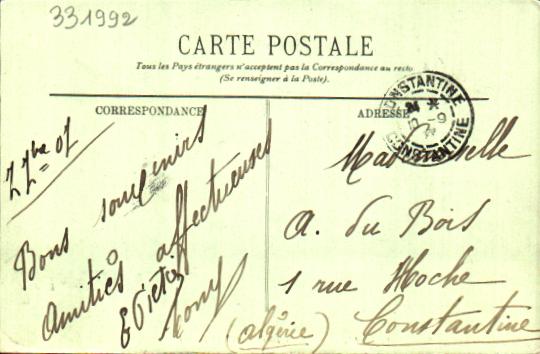 331992
CARTE POSTALE
Tous les Pays étrangers n'acceptent pas la Correspondance au recto
(Se renseigner à la Poste).
CORRESPONDANCE
ADRESSE
CONSTANTINE
CONSTANTINE
7bre 07
Bons souvenirs
Amitiés affectueuses
Mademoiselle
A. du Bois
1 rue Hoche
Constantine
(algérie)